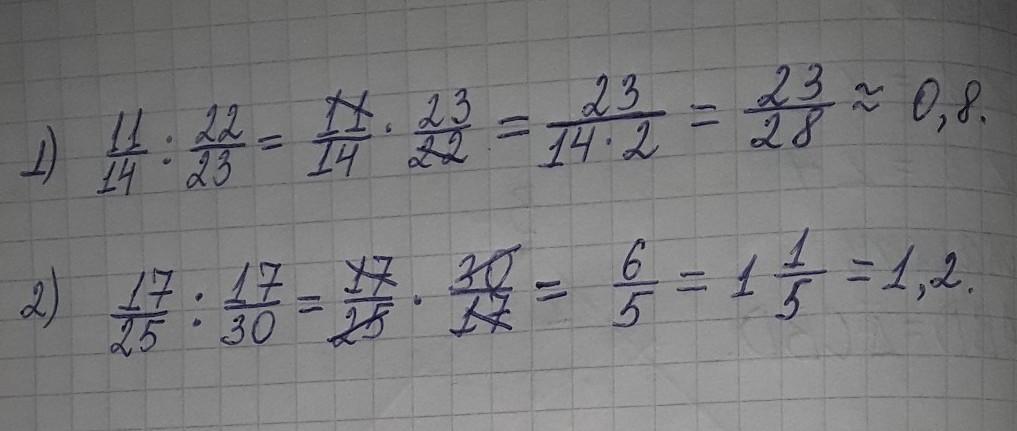 1) 11/14 : 22/23 = 11/14 · 23/22 = 23/(14·2) = 23/28 ≈ 0,8.
2) 17/25 : 17/30 = 17/25 · 30/17 = 6/5 = 1 1/5 = 1,2.